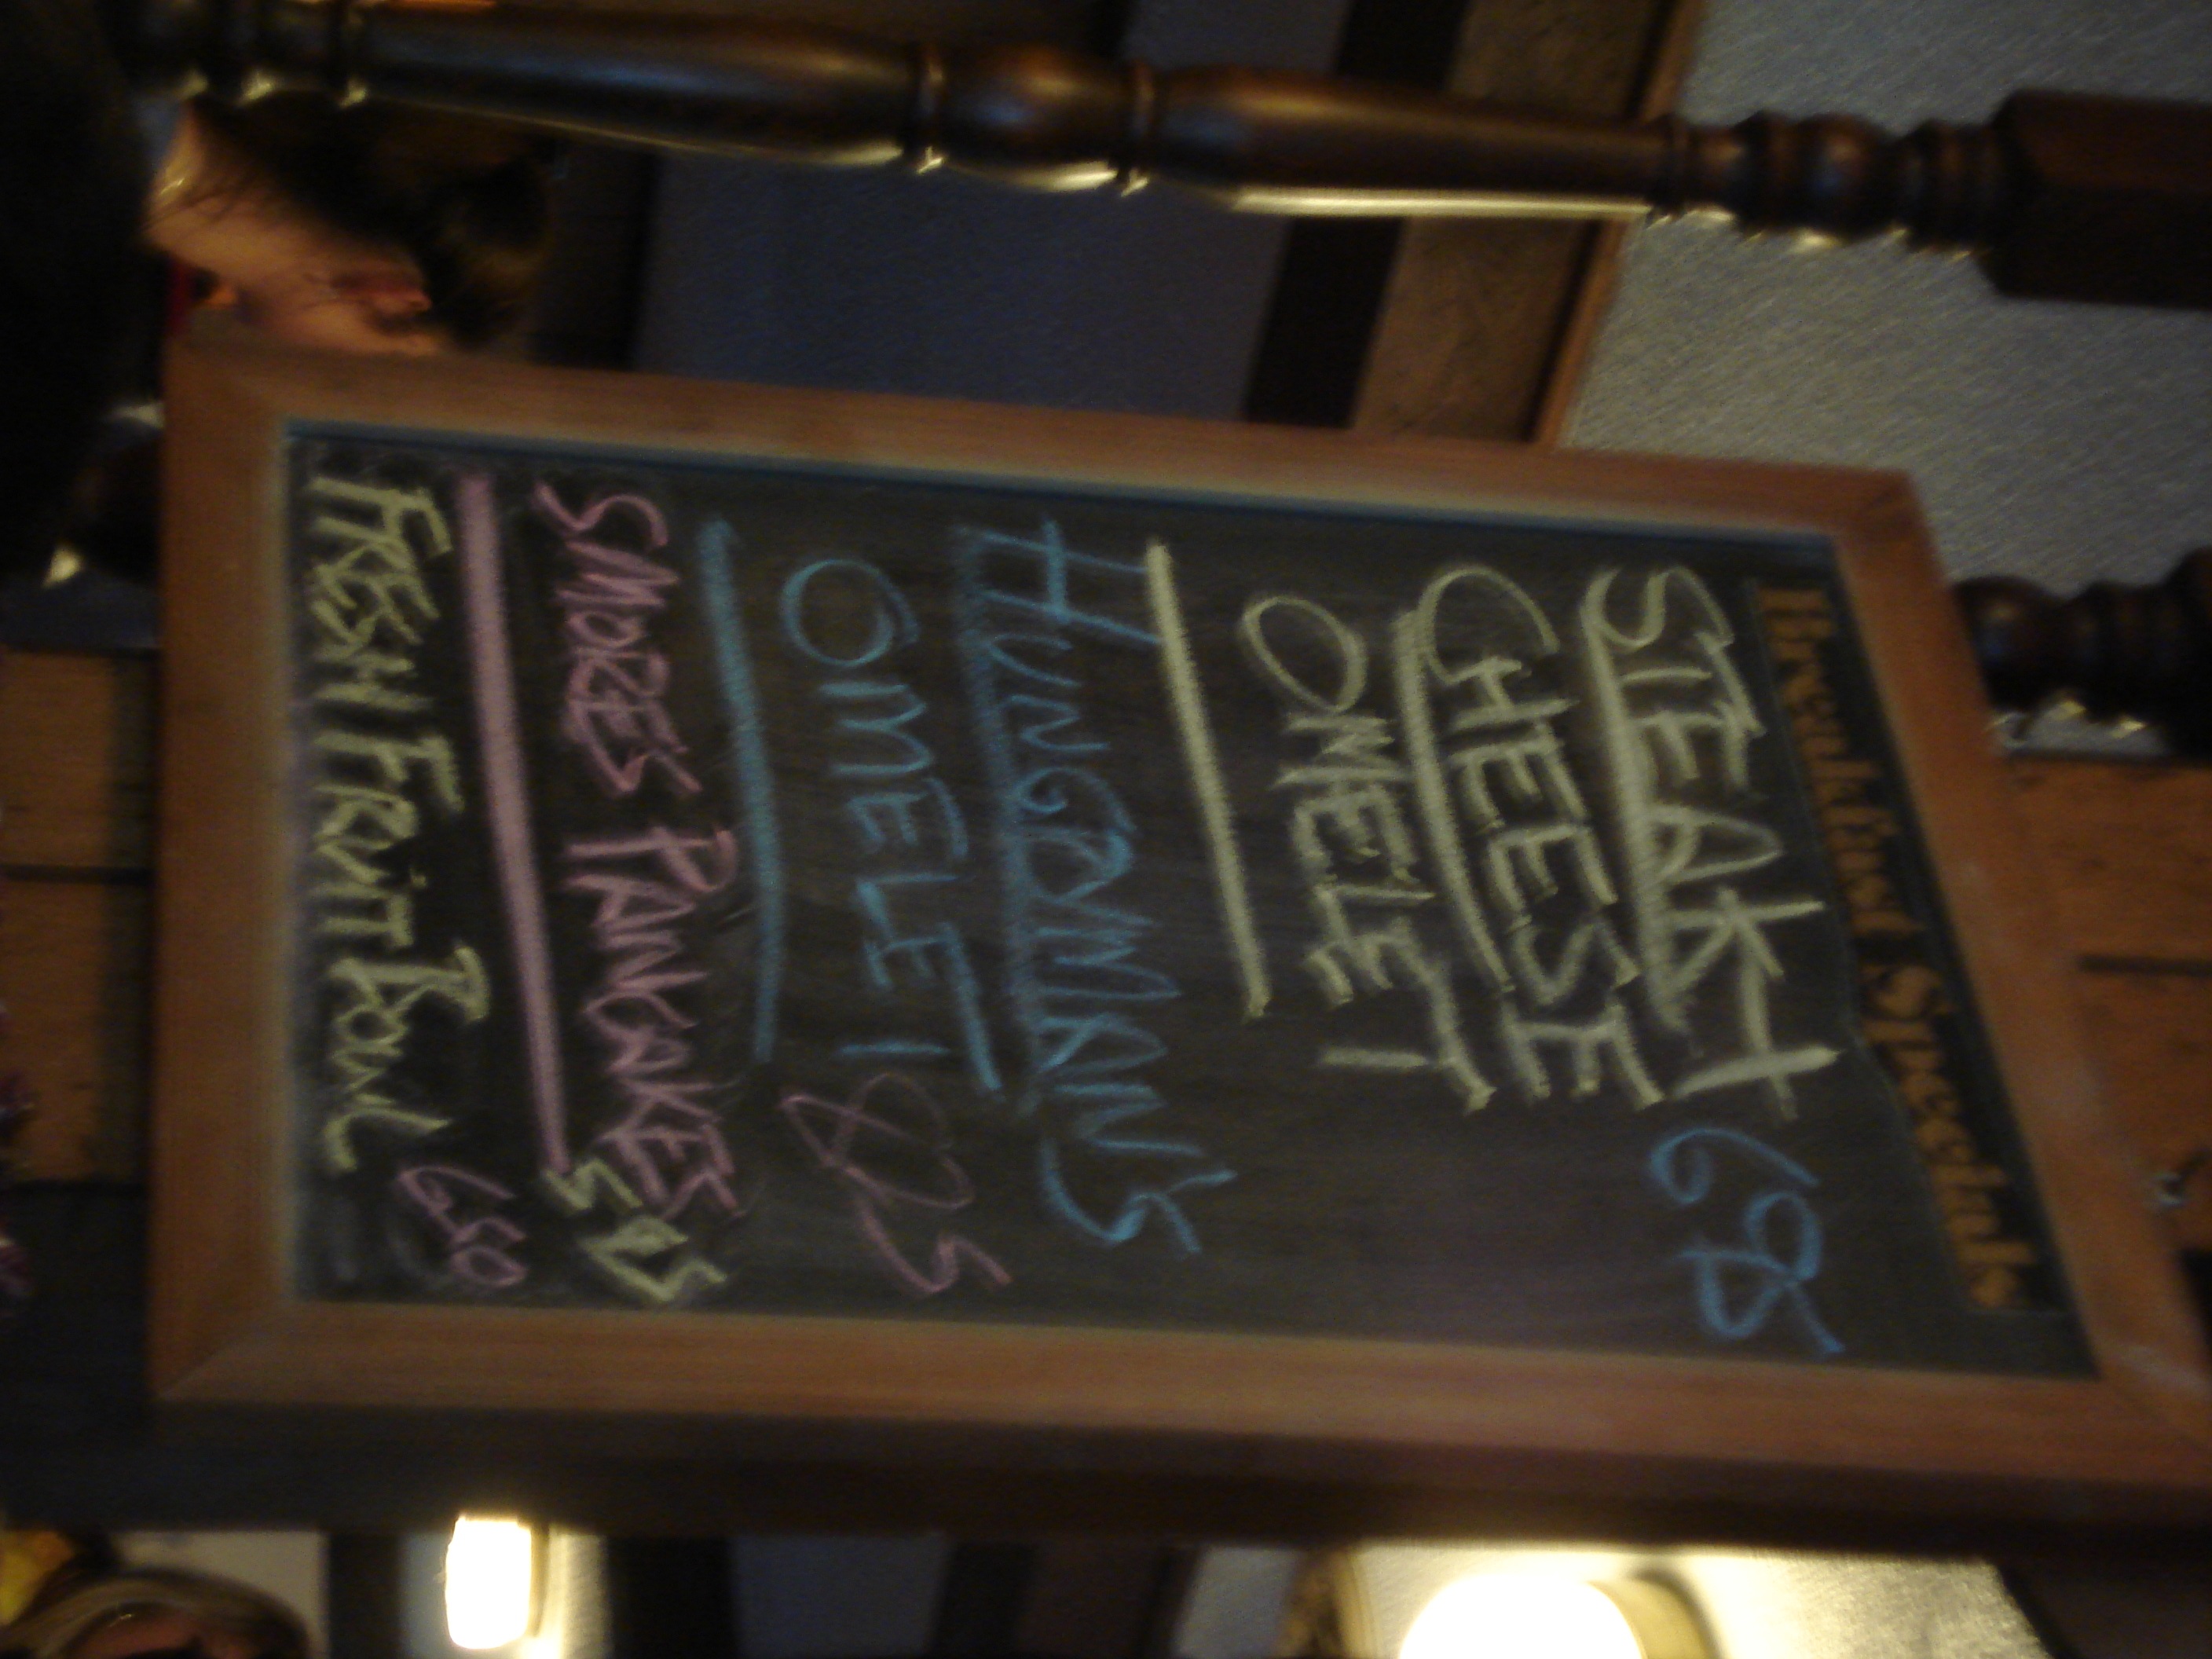 Breakfast Specials
STEAK +
CHEESE
OMELET
HUNGRYMAN'S
OMELET
SMORES PANCAKES
FRESH FRUIT BOWL